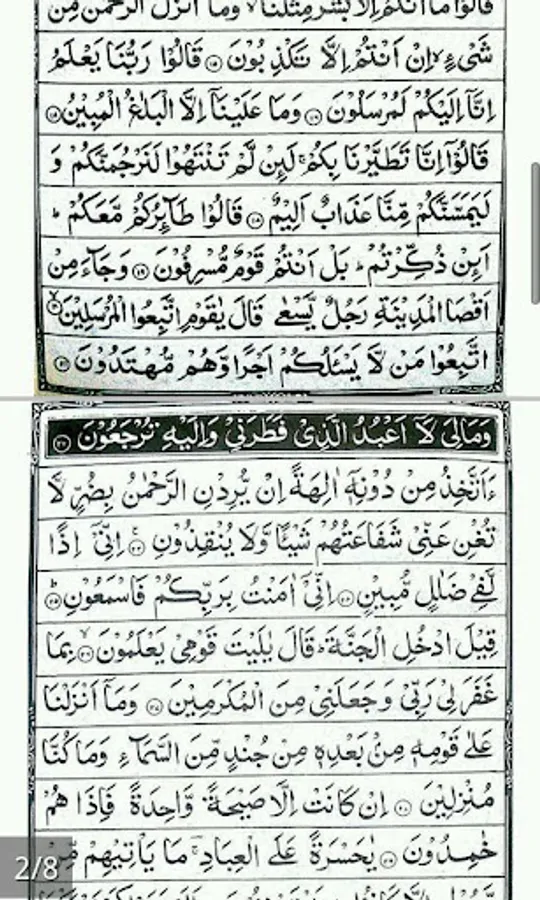 قَالُوْا مَاۤ اَنْتُمْ اِلَّا بَشَرٌ مِّثْلُنَا ۙ وَمَاۤ اَنْزَلَ الرَّحْمٰنُ مِنْ
شَیْءٍ ۙ اِنْ اَنْتُمْ اِلَّا تَكْذِبُوْنَ ۝۱۵ قَالُوْا رَبُّنَا یَعْلَمُ
اِنَّاۤ اِلَیْكُمْ لَمُرْسَلُوْنَ ۝۱۶ وَمَا عَلَیْنَاۤ اِلَّا الْبَلٰغُ الْمُبِیْنُ ۝۱۷
قَالُوْۤا اِنَّا تَطَیَّرْنَا بِكُمْ ۚ لَىِٕنْ لَّمْ تَنْتَهُوْا لَنَرْجُمَنَّكُمْ وَ
لَیَمَسَّنَّكُمْ مِّنَّا عَذَابٌ اَلِیْمٌ ۝۱۸ قَالُوْا طَآىِٕرُكُمْ مَّعَكُمْ ؕ
اَىِٕنْ ذُكِّرْتُمْ ؕ بَلْ اَنْتُمْ قَوْمٌ مُّسْرِفُوْنَ ۝۱۹ وَجَآءَ مِنْ
اَقْصَا الْمَدِیْنَةِ رَجُلٌ یَّسْعٰی قَالَ یٰقَوْمِ اتَّبِعُوا الْمُرْسَلِیْنَ ۝۲۰ۙ
اتَّبِعُوْا مَنْ لَّا یَسْـَٔلُكُمْ اَجْرًا وَّهُمْ مُّهْتَدُوْنَ ۝۲۱
وَمَا لِیَ لَاۤ اَعْبُدُ الَّذِیْ فَطَرَنِیْ وَاِلَیْهِ تُرْجَعُوْنَ ۝۲۲
ءَاَتَّخِذُ مِنْ دُوْنِهٖۤ اٰلِهَةً اِنْ یُّرِدْنِ الرَّحْمٰنُ بِضُرٍّ لَّا
تُغْنِ عَنِّیْ شَفَاعَتُهُمْ شَیْـًٔا وَّلَا یُنْقِذُوْنِ ۝۲۳ۚ اِنِّیْۤ اِذًا
لَّفِیْ ضَلٰلٍ مُّبِیْنٍ ۝۲۴ اِنِّیْۤ اٰمَنْتُ بِرَبِّكُمْ فَاسْمَعُوْنِ ۝۲۵ؕ
قِیْلَ ادْخُلِ الْجَنَّةَ ؕ قَالَ یٰلَیْتَ قَوْمِیْ یَعْلَمُوْنَ ۝۲۶ۙ بِمَا
غَفَرَ لِیْ رَبِّیْ وَجَعَلَنِیْ مِنَ الْمُكْرَمِیْنَ ۝۲۷ وَمَاۤ اَنْزَلْنَا
عَلٰی قَوْمِهٖ مِنْۢ بَعْدِهٖ مِنْ جُنْدٍ مِّنَ السَّمَآءِ وَمَا كُنَّا
مُنْزِلِیْنَ ۝۲۸ اِنْ كَانَتْ اِلَّا صَیْحَةً وَّاحِدَةً فَاِذَا هُمْ
خٰمِدُوْنَ ۝۲۹ یٰحَسْرَةً عَلَی الْعِبَادِ ۚ مَا یَاْتِیْهِمْ مِّنْ
2/8